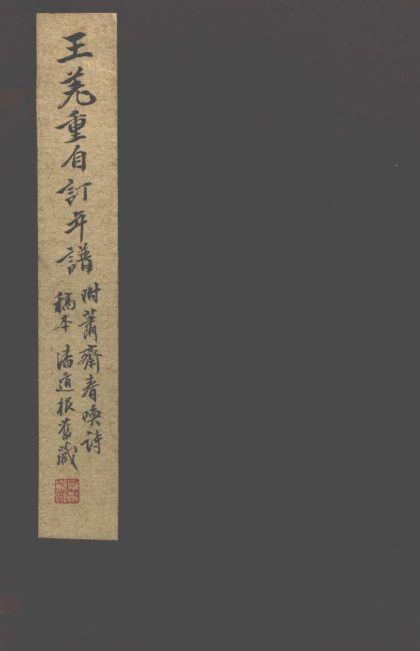 王重自訂年譜
附蕭齋詩
稿本 潘道根舊藏